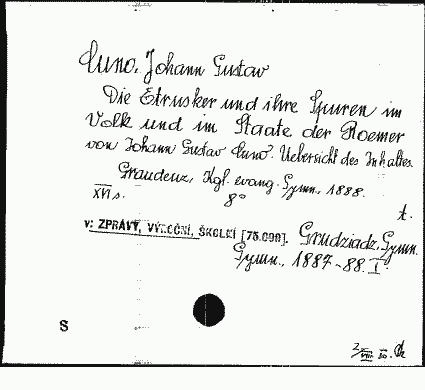 Cuno, Johann Gustav
Die Etrusker und ihre Spuren im
Volk und im Staate der Roemer
von Johann Gustav Cuno. Uebersicht des Inhaltes.
Graudenz, Kgl. evang. Gymn., 1888.
XVI s. 8°
t.
v: ZPRÁVY, VÝROČNÍ, ŠKOLNÍ [75.000]. Grudziadz, Gymn.
Gymn., 1887-88. I.
S